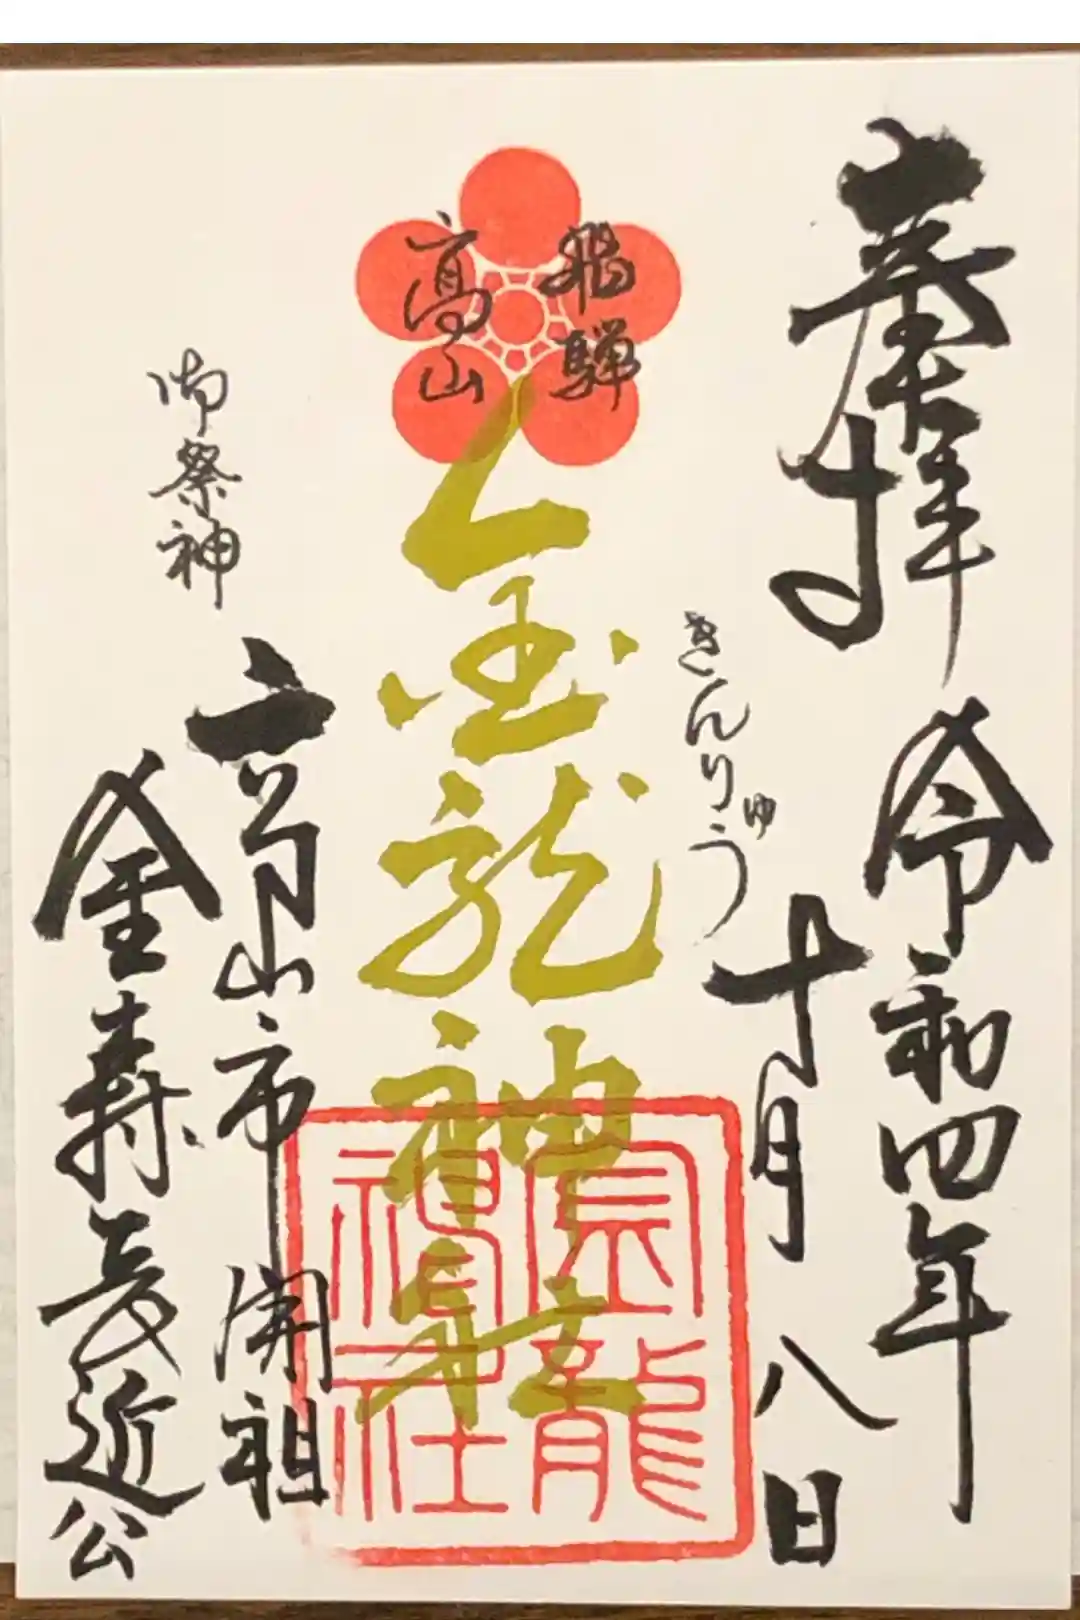 奉拝
令和四年
十月八日
きんりゅう
飛騨
高山
金龍神社
金龍
神社
御祭神
高山市開祖
金森長近公